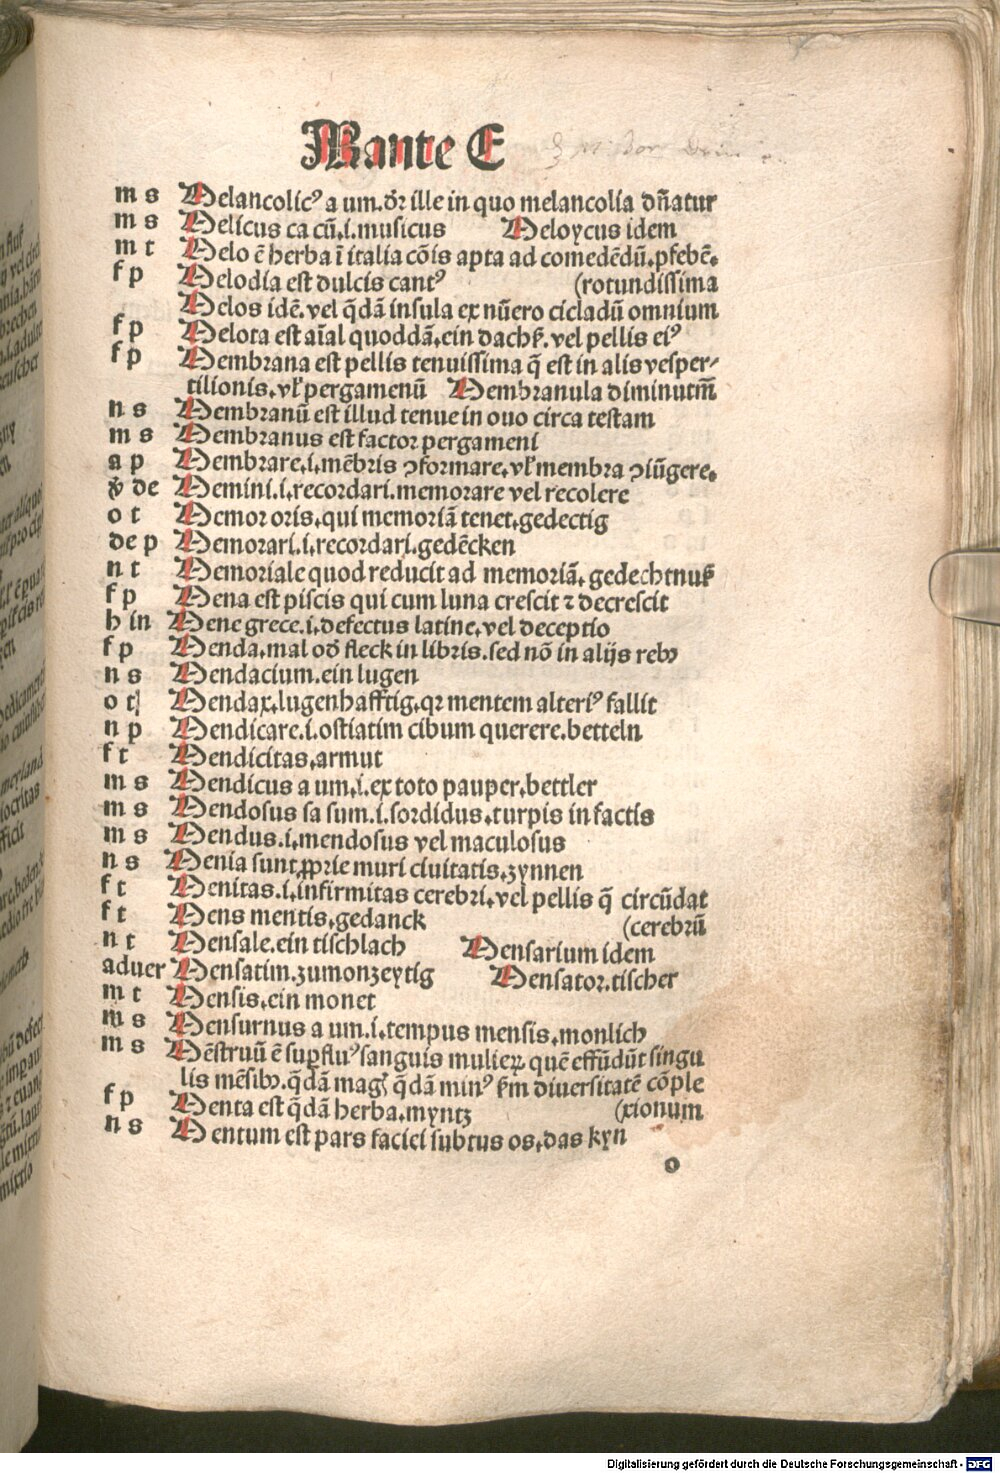 M ante E
m s Melancolicꝰ a um. dr̄ ille in quo melancolia dn̄atur
m s Melicus ca cū. i. musicus Meloycus idem
m t Melo ē herba ī italia cōis apta ad comedēdū. p̄febē.
f p Melodia est dulcis cantꝰ (rotundissima
Melos idē. vel q̄dā insula ex nūero cicladū omnium
f p Melota est aīal quoddā. ein dachß. vel pellis eiꝰ
f p Membrana est pellis tenuissima q̄ est in alis vesper⸗
tilionis. vl̓ pergamenū Membranula diminutm̄
n s Membranū est illud tenue in ouo circa testam
m s Membranus est factor pergameni
a p Membrare. i. mēbris ꝯformare. vl̓ membra ꝯiūgere.
v̄ de Memini. i. recordari. memorare vel recolere
o t Memor oris. qui memoriā tenet. gedectig
de p Memorari. i. recordari. gedēcken
n t Memoriale quod reducit ad memoriā. gedechtnuß
f p Mena est piscis qui cum luna crescit ⁊ decrescit
h in Mene grece. i. defectus latine. vel deceptio
f p Menda. mal od̓ fleck in libris. sed nō in alijs rebꝰ
n s Mendacium. ein lugen
o t Mendax. lugenhafftig. qꝛ mentem alteriꝰ fallit
n p Mendicare. i. ostiatim cibum querere. betteln
f t Mendicitas. armut
m s Mendicus a um. i. ex toto pauper. bettler
m s Mendosus sa sum. i. sordidus. turpis in factis
m s Mendus. i. mendosus vel maculosus
n s Menia sunt ꝓprie muri ciuitatis. zynnen
f t Menitas. i. infirmitas cerebri. vel pellis q̄ circūdat
f t Mens mentis. gedanck (cerebrū
n t Mensale. ein tischlach Mensarium idem
aduer Mensatim. zumonzeytig Mensator. tischer
m t Mensis. ein monet
m s Mensurnus a um. i. tempus mensis. monlich
m s Mēstruū ē suꝑfluꝰ sanguis mulieꝝ quē effūdūt singu
lis mēsibꝰ. q̄dā magꝭ q̄dā minꝰ ẜm diuersitatē cōple
f p Menta est q̄dā herba. myntz (xionum
n s Mentum est pars faciei subtus os. das kyn
o
Digitalisierung gefördert durch die Deutsche Forschungsgemeinschaft - DFG